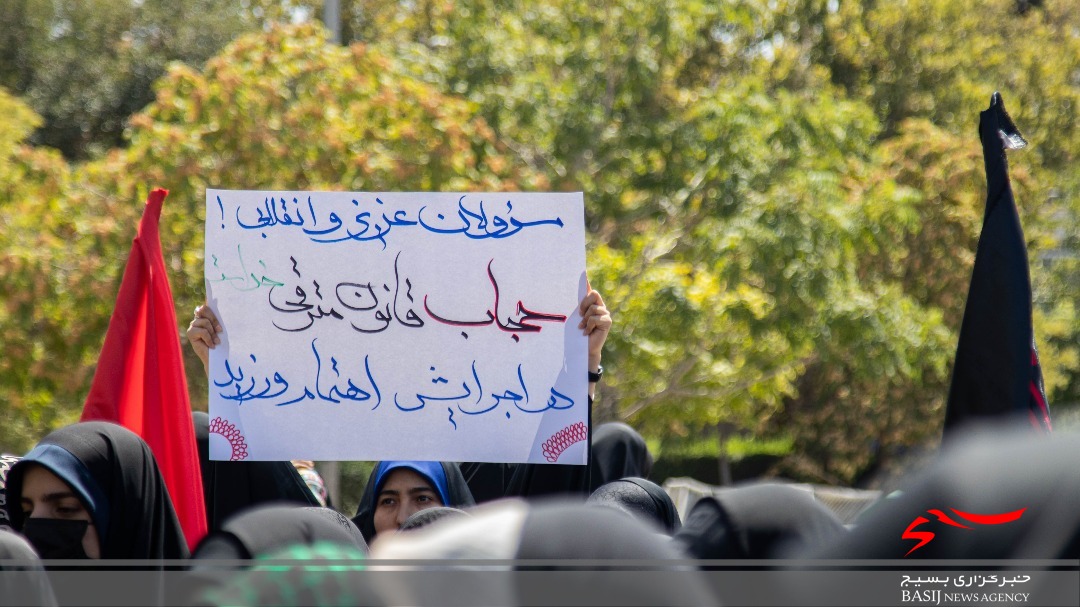 مسؤولان عزیز و انقلابی !
حجاب قانون مترقی خداست
در اجرایش اهتمام ورزید
خبرگزاری بسیج
BASIJ NEWS AGENCY